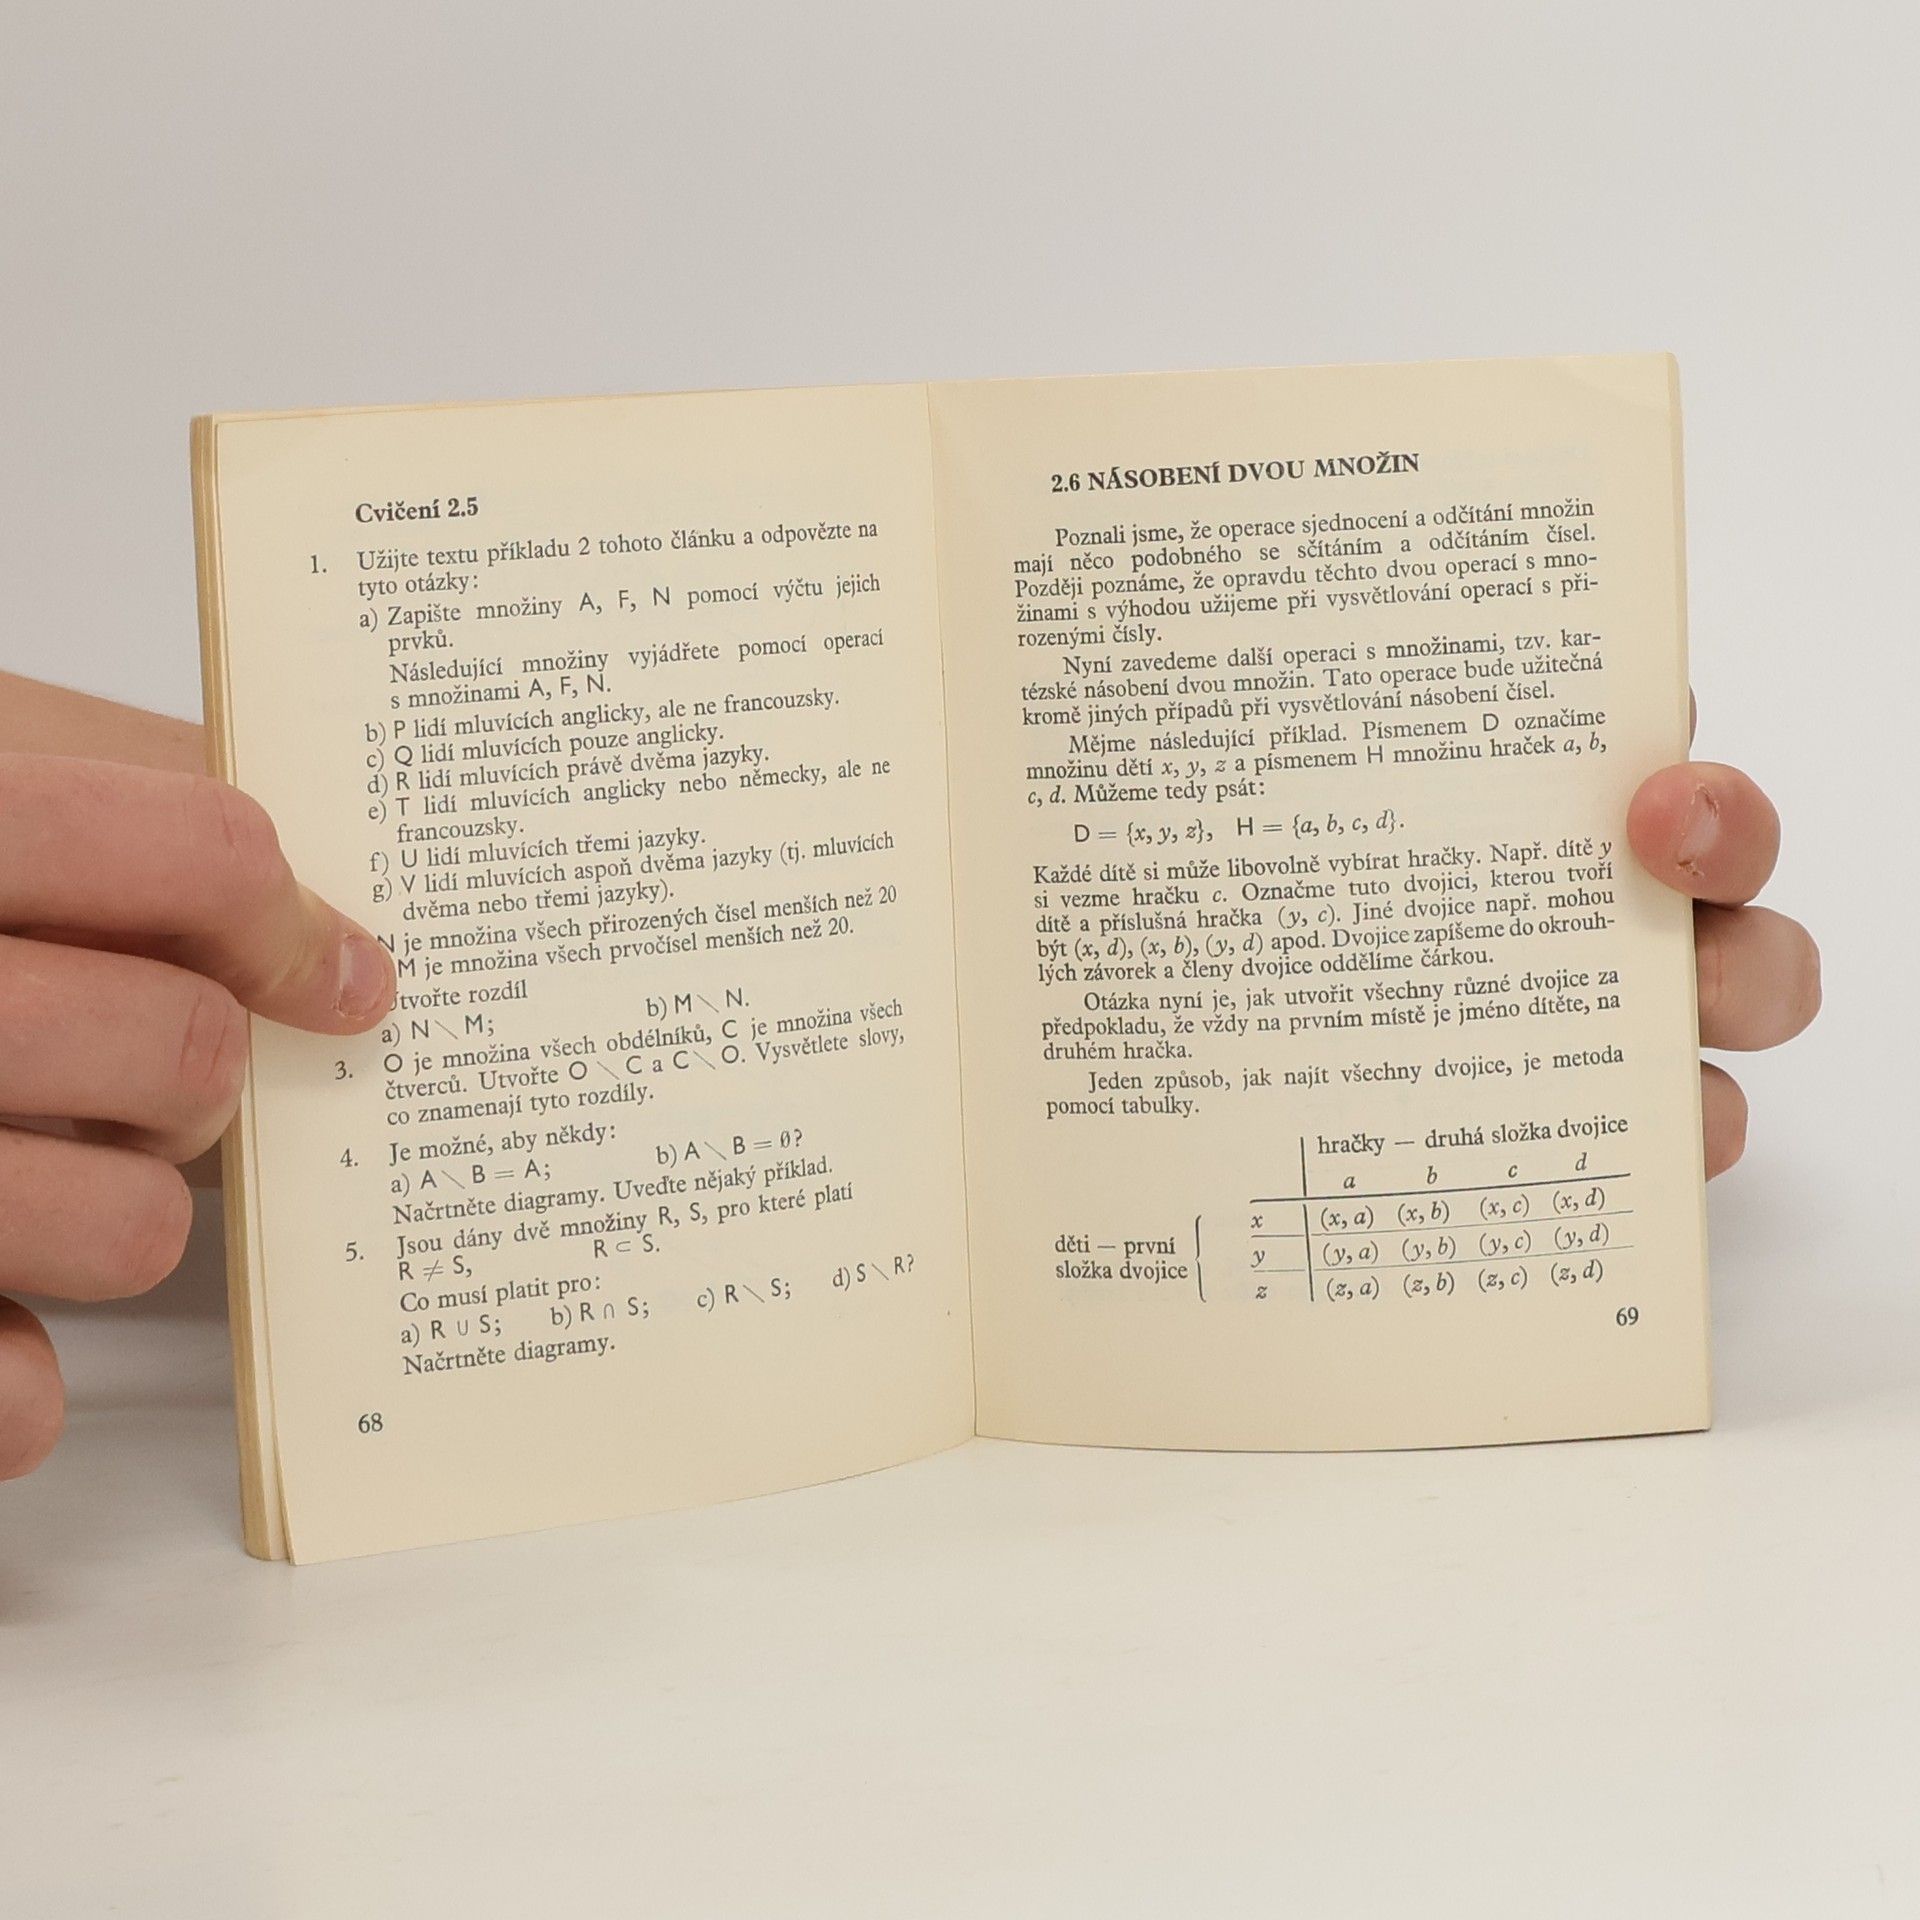 Cvičení 2.5
1. Užijte textu příkladu 2 tohoto článku a odpovězte na
tyto otázky:
a) Zapište množiny A, F, N pomocí výčtu jejich
prvků.
Následující množiny vyjádřete pomocí operací
s množinami A, F, N.
b) P lidí mluvících anglicky, ale ne francouzsky.
c) Q lidí mluvících pouze anglicky.
d) R lidí mluvících právě dvěma jazyky.
e) T lidí mluvících anglicky nebo německy, ale ne
francouzsky.
f) U lidí mluvících třemi jazyky.
g) V lidí mluvících aspoň dvěma jazyky (tj. mluvících
dvěma nebo třemi jazyky).
N je množina všech přirozených čísel menších než 20
M je množina všech prvočísel menších než 20.
Utvořte rozdíl
a) N \ M; b) M \ N.
3. O je množina všech obdélníků, C je množina všech
čtverců. Utvořte O \ C a C \ O. Vysvětlete slovy,
co znamenají tyto rozdíly.
4. Je možné, aby někdy:
a) A \ B = A; b) A \ B = ∅?
Načrtněte diagramy. Uveďte nějaký příklad.
5. Jsou dány dvě množiny R, S, pro které platí
R ≠ S, R ⊂ S.
Co musí platit pro:
a) R ∪ S; b) R ∩ S; c) R \ S; d) S \ R?
Načrtněte diagramy.
68
2.6 NÁSOBENÍ DVOU MNOŽIN
Poznali jsme, že operace sjednocení a odčítání množin
mají něco podobného se sčítáním a odčítáním čísel.
Později poznáme, že opravdu těchto dvou operací s mno-
žinami s výhodou užijeme při vysvětlování operací s při-
rozenými čísly.
Nyní zavedeme další operaci s množinami, tzv. kar-
tézské násobení dvou množin. Tato operace bude užitečná
kromě jiných případů při vysvětlování násobení čísel.
Mějme následující příklad. Písmenem D označíme
množinu dětí x, y, z a písmenem H množinu hraček a, b,
c, d. Můžeme tedy psát:
D = {x, y, z}, H = {a, b, c, d}.
Každé dítě si může libovolně vybírat hračky. Např. dítě y
si vezme hračku c. Označme tuto dvojici, kterou tvoří
dítě a příslušná hračka (y, c). Jiné dvojice např. mohou
být (x, d), (x, b), (y, d) apod. Dvojice zapíšeme do okrouh-
lých závorek a členy dvojice oddělíme čárkou.
Otázka nyní je, jak utvořit všechny různé dvojice za
předpokladu, že vždy na prvním místě je jméno dítěte, na
druhém hračka.
Jeden způsob, jak najít všechny dvojice, je metoda
pomocí tabulky.
hračky — druhá složka dvojice
a b c d
x (x, a) (x, b) (x, c) (x, d)
děti — první
složka dvojice
y (y, a) (y, b) (y, c) (y, d)
z (z, a) (z, b) (z, c) (z, d)
69